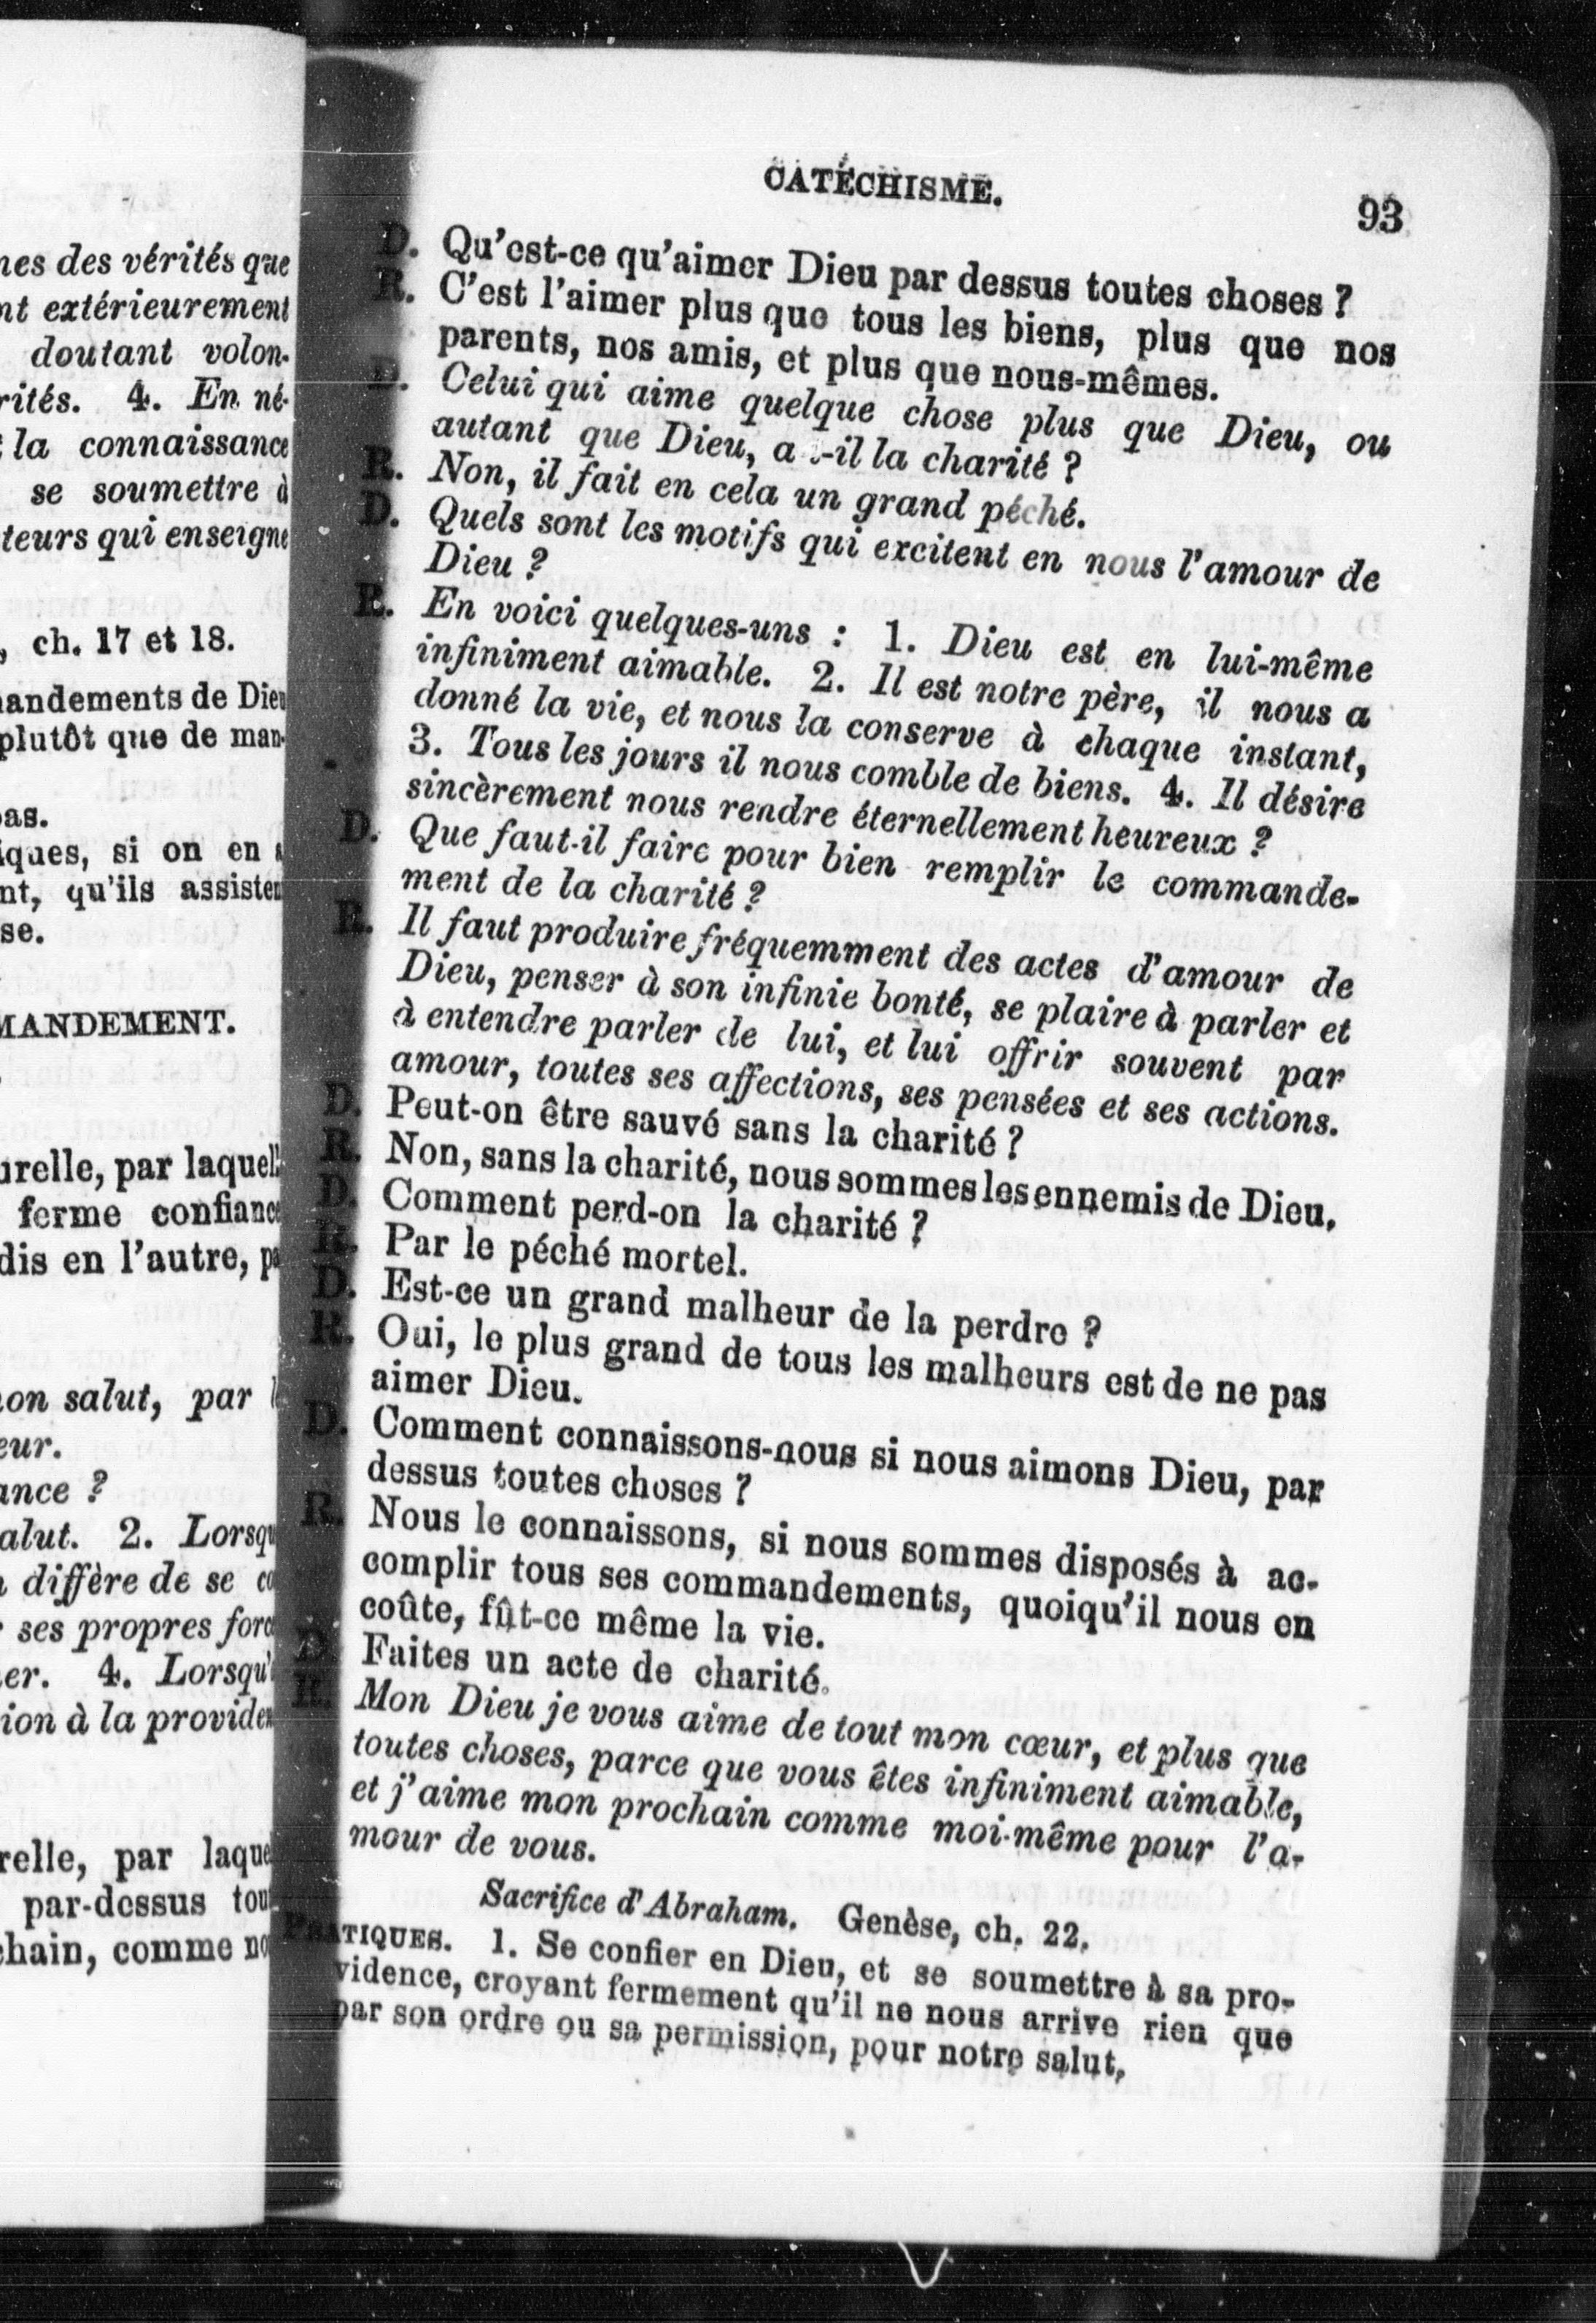 nes des vérités que
nt extérieurement
doutant volon-
rités. 4. En né-
la connaissance
se soumettre à
teurs qui enseigne
, ch. 17 et 18.
andements de Dieu
plutôt que de man-
pas.
iques, si on en
nt, qu'ils assisten
se.
MANDEMENT.
urelle, par laquell
ferme confiance
dis en l'autre, pa
on salut, par
eur.
ance ?
alut. 2. Lorsqu
diffère de se co
ses propres forc
er. 4. Lorsqu'
ion à la providen
relle, par laque
par-dessus tou
chain, comme no
CATÉCHISME.
93
D. Qu'est-ce qu'aimer Dieu par dessus toutes choses ?
R. C'est l'aimer plus que tous les biens, plus que nos
parents, nos amis, et plus que nous-mêmes.
D. Celui qui aime quelque chose plus que Dieu, ou
autant que Dieu, a t-il la charité ?
R. Non, il fait en cela un grand péché.
D. Quels sont les motifs qui excitent en nous l'amour de
Dieu ?
R. En voici quelques-uns : 1. Dieu est en lui-même
infiniment aimable. 2. Il est notre père, il nous a
donné la vie, et nous la conserve à chaque instant,
3. Tous les jours il nous comble de biens. 4. Il désire
sincèrement nous rendre éternellement heureux ?
D. Que faut-il faire pour bien remplir le commande-
ment de la charité ?
R. Il faut produire fréquemment des actes d'amour de
Dieu, penser à son infinie bonté, se plaire à parler et
à entendre parler de lui, et lui offrir souvent par
amour, toutes ses affections, ses pensées et ses actions.
D. Peut-on être sauvé sans la charité ?
R. Non, sans la charité, nous sommes les ennemis de Dieu.
D. Comment perd-on la charité ?
R. Par le péché mortel.
D. Est-ce un grand malheur de la perdre ?
R. Oui, le plus grand de tous les malheurs est de ne pas
aimer Dieu.
D. Comment connaissons-nous si nous aimons Dieu, par
dessus toutes choses ?
R. Nous le connaissons, si nous sommes disposés à ac-
complir tous ses commandements, quoiqu'il nous en
coûte, fût-ce même la vie.
D. Faites un acte de charité.
R. Mon Dieu je vous aime de tout mon cœur, et plus que
toutes choses, parce que vous êtes infiniment aimable,
et j'aime mon prochain comme moi-même pour l'a-
mour de vous.
Sacrifice d'Abraham. Genèse, ch. 22.
PRATIQUES. 1. Se confier en Dieu, et se soumettre à sa pro-
vidence, croyant fermement qu'il ne nous arrive rien que
par son ordre ou sa permission, pour notre salut,